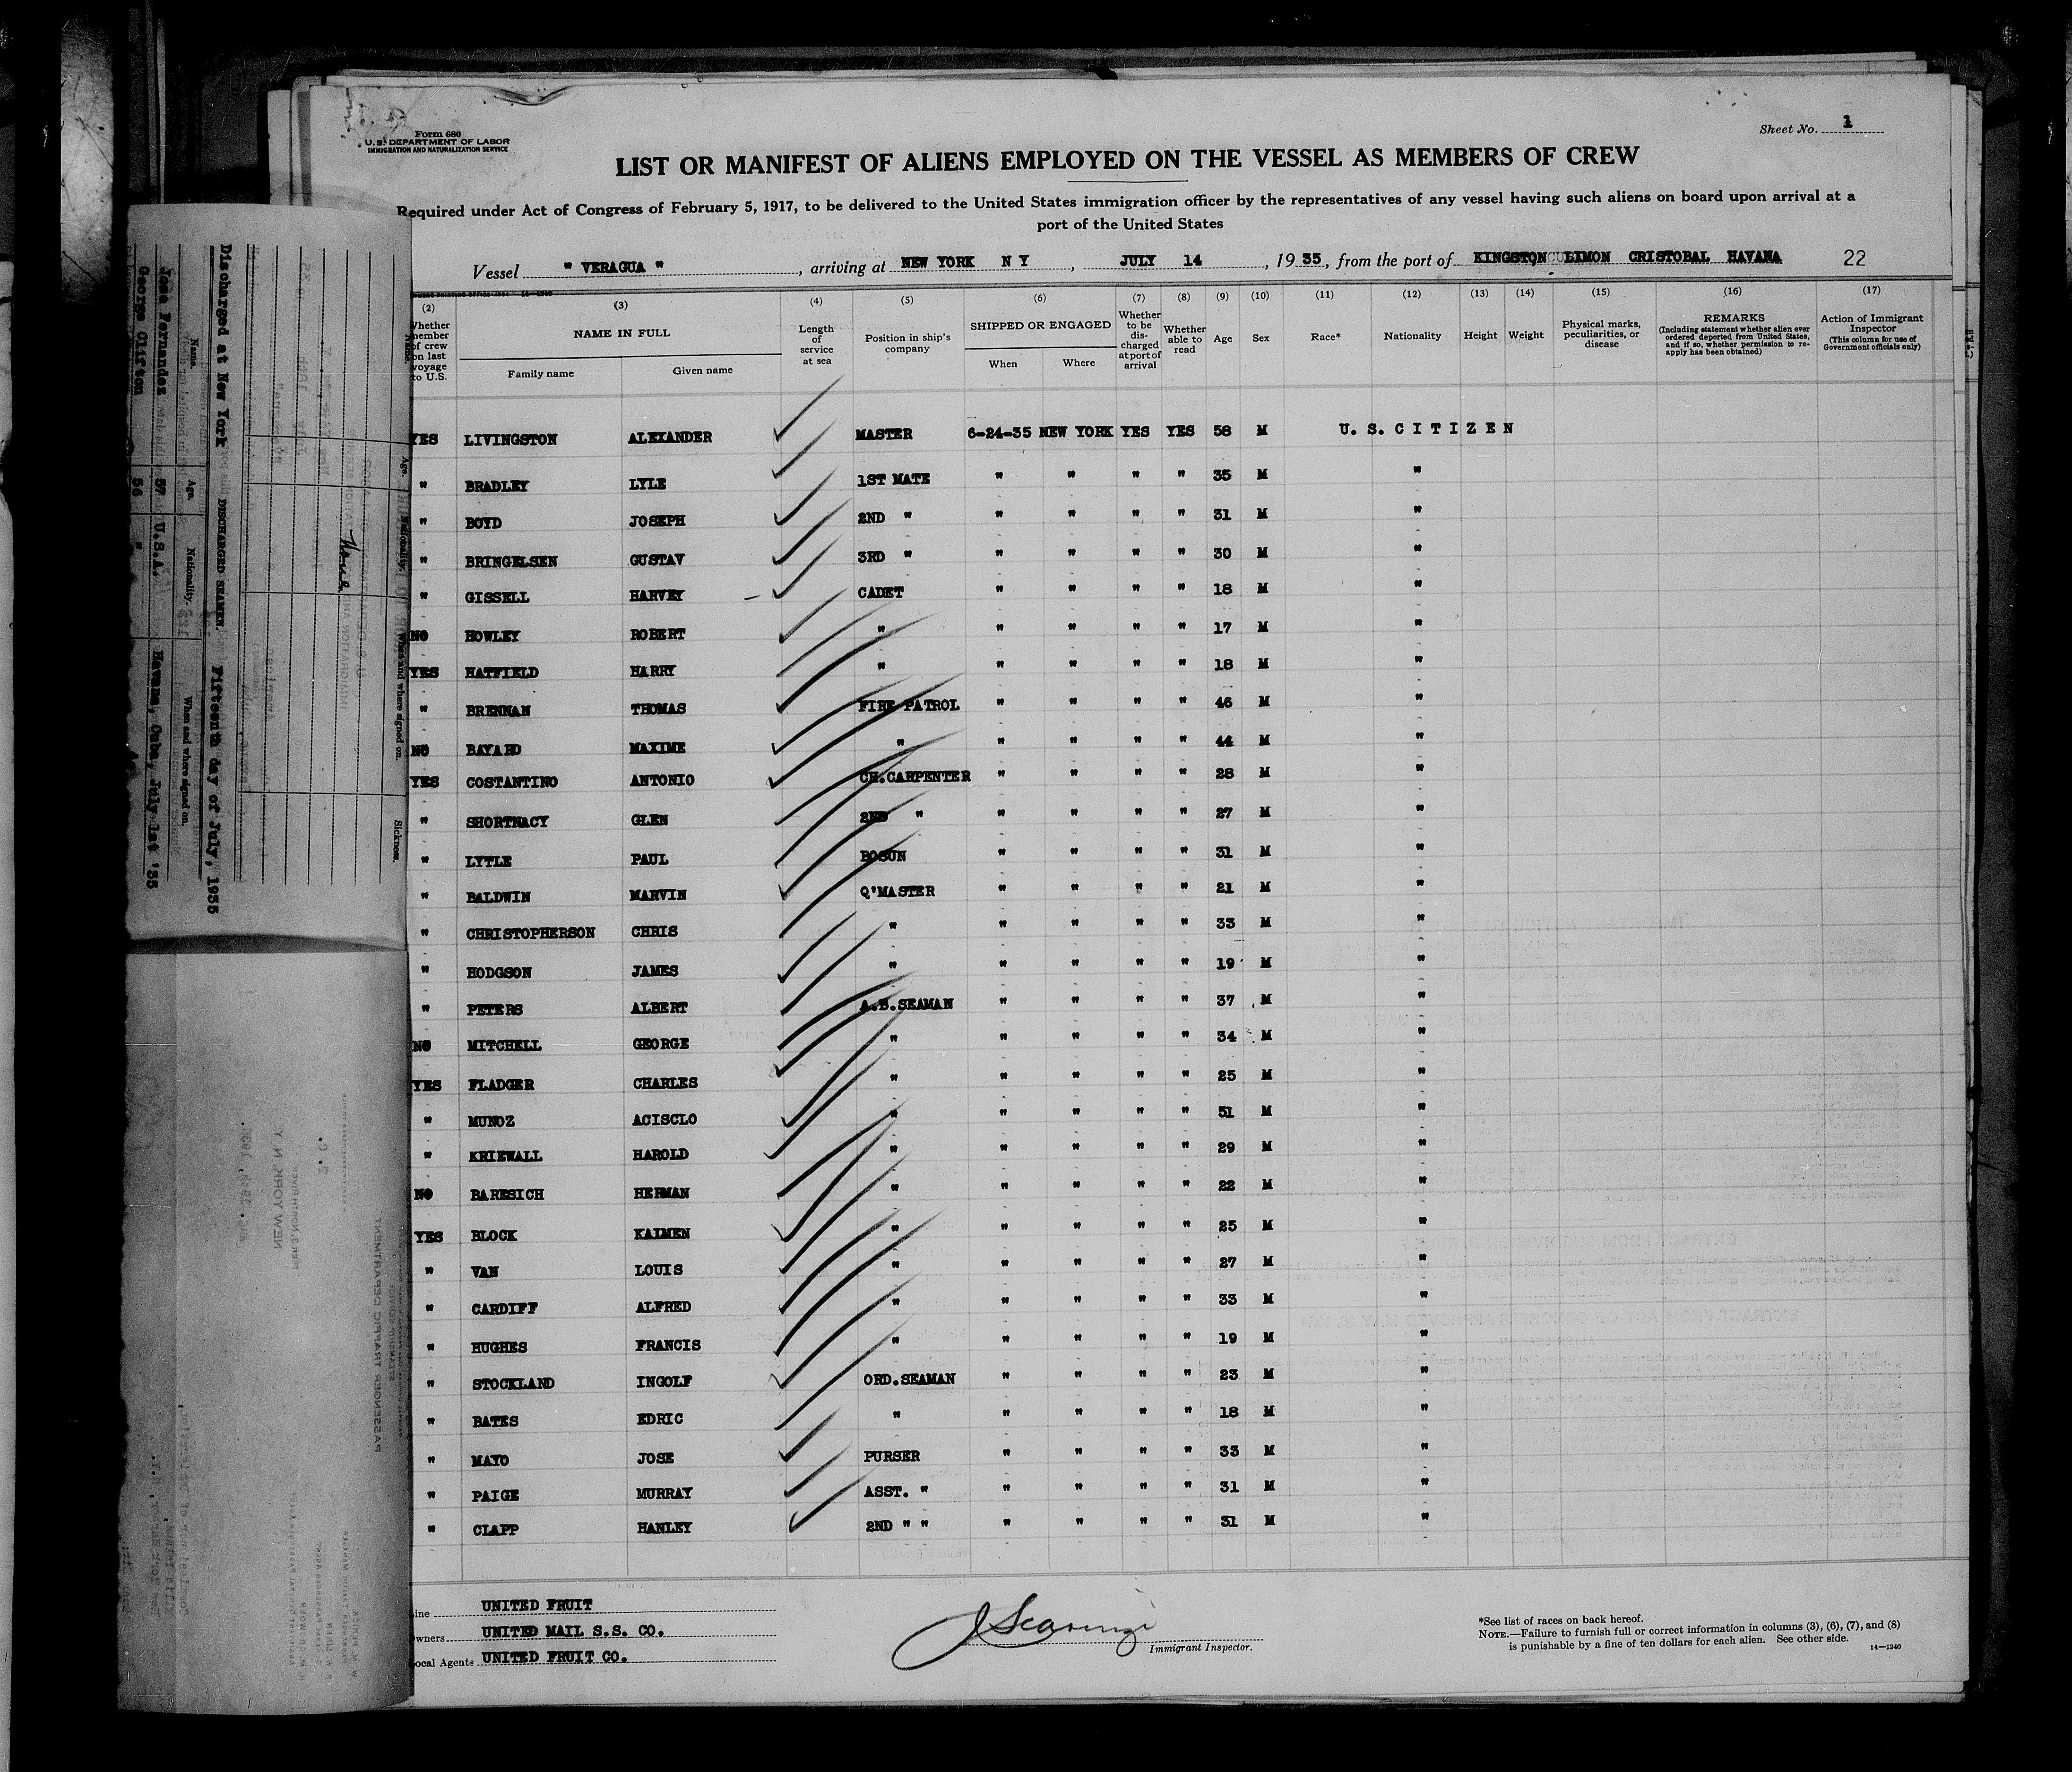 Form 680
U. S. DEPARTMENT OF LABOR
IMMIGRATION AND NATURALIZATION SERVICE
Sheet No. 1
LIST OR MANIFEST OF ALIENS EMPLOYED ON THE VESSEL AS MEMBERS OF CREW
Required under Act of Congress of February 5, 1917, to be delivered to the United States immigration officer by the representatives of any vessel having such aliens on board upon arrival at a
port of the United States
Vessel " VERAGUA ", arriving at NEW YORK N Y, JULY 14, 1935, from the port of KINGSTON LIMON CRISTOBAL HAVANA 22
(2) Whether member of crew on last voyage to U.S. (3) NAME IN FULL Family name Given name (4) Length of service at sea (5) Position in ship's company (6) SHIPPED OR ENGAGED When Where (7) Whether to be discharged at port of arrival (8) Whether able to read (9) Age (10) Sex (11) Race* (12) Nationality (13) Height (14) Weight (15) Physical marks, peculiarities, or disease (16) REMARKS (Including statement whether alien ever ordered deported from United States, and if so, whether permission to reapply has been obtained) (17) Action of Immigrant Inspector (This column for use of Government officials only)
YES LIVINGSTON ALEXANDER MASTER 6-24-35 NEW YORK YES YES 58 M U. S. C I T I Z E N
" BRADLEY LYLE 1ST MATE " " " " 35 M "
" BOYD JOSEPH 2ND " " " " " 31 M "
" BRINGELSEN GUSTAV 3RD " " " " " 30 M "
" GISSELL HARVEY CADET " " " " 18 M "
NO HOWLEY ROBERT " " " " " 17 M "
YES HATFIELD HARRY " " " " " 18 M "
" BRENNAN THOMAS FIRE PATROL " " " " 46 M "
NO BAYARD MAXIME " " " " " 44 M "
YES COSTANTINO ANTONIO CH.CARPENTER " " " " 28 M "
" SHORTNACY GLEN 2ND " " " " " 27 M "
" LYTLE PAUL BOSUN " " " " 31 M "
" BALDWIN MARVIN Q'MASTER " " " " 21 M "
" CHRISTOPHERSON CHRIS " " " " " 33 M "
" HODGSON JAMES " " " " " 19 M "
" PETERS ALBERT A.B.SEAMAN " " " " 37 M "
NO MITCHELL GEORGE " " " " " 34 M "
YES FLADGER CHARLES " " " " " 25 M "
" MUNOZ ACISCLO " " " " " 51 M "
" KRIEWALL HAROLD " " " " " 29 M "
NO BARESICH HERMAN " " " " " 22 M "
YES BLOCK KAIMEN " " " " " 25 M "
" VAN LOUIS " " " " " 27 M "
" CARDIFF ALFRED " " " " " 33 M "
" HUGHES FRANCIS " " " " " 19 M "
" STOCKLAND INGOLF ORD.SEAMAN " " " " 23 M "
" BATES EDRIC " " " " " 18 M "
" MAYO JOSE PURSER " " " " 33 M "
" PAIGE MURRAY ASST. " " " " " 31 M "
" CLAPP HANLEY 2ND " " " " " " 31 M "
Line UNITED FRUIT
Owners UNITED MAIL S.S. CO.
Local Agents UNITED FRUIT CO.
J Scaringi
Immigrant Inspector.
*See list of races on back hereof.
NOTE.—Failure to furnish full or correct information in columns (3), (6), (7), and (8)
is punishable by a fine of ten dollars for each alien. See other side.
14—1240
Age. Nationality. When and where signed on. Sickness.
None
DISCHARGED SEAMEN.
Discharged at New York Fifteenth day of July, 1935
Name. Age. Nationality. When and where signed on.
Jose Fernandez 57 U.S.A. Havana, Cuba, July 1st '35
George Clifton 56 "
PASSENGER TRAFFIC DEPARTMENT
STEAMSHIP SERVICE
PIER 3, NORTH RIVER
NEW YORK, N. Y.